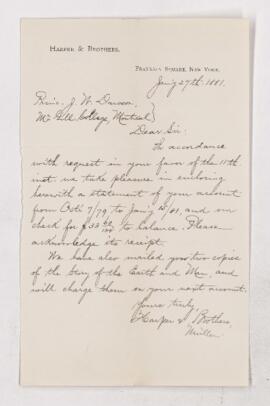 HARPER & BROTHERS,
FRANKLIN SQUARE, NEW YORK.
Jan'y 27th. 1881.
Princ. J. W. Dawson,
McGill College, Montreal
Dear Sir:
In accordance
with request in your favor of the 11th
inst. we take pleasure in enclosing
herewith a statement of your account
from Oct. 7/79 to Jan'y /81, and our
check for $ to balance. Please
acknowledge its receipt.
We have also mailed you two copies
of the Story of the Earth and Man, and
will charge them on your next account.
Yours truly,
Harper & Brothers,